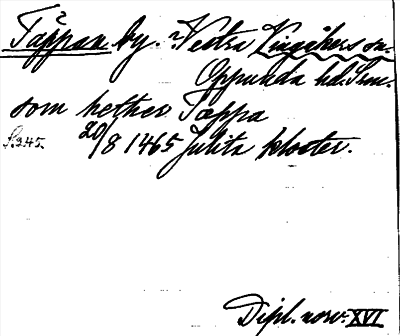 Täppan by. Vestra Vingåkers sn.
Oppunda hd. Sum.
som hether Tappa
S. 345. 20/8 1465 Julita kloster.
Dipl. norv: XVI